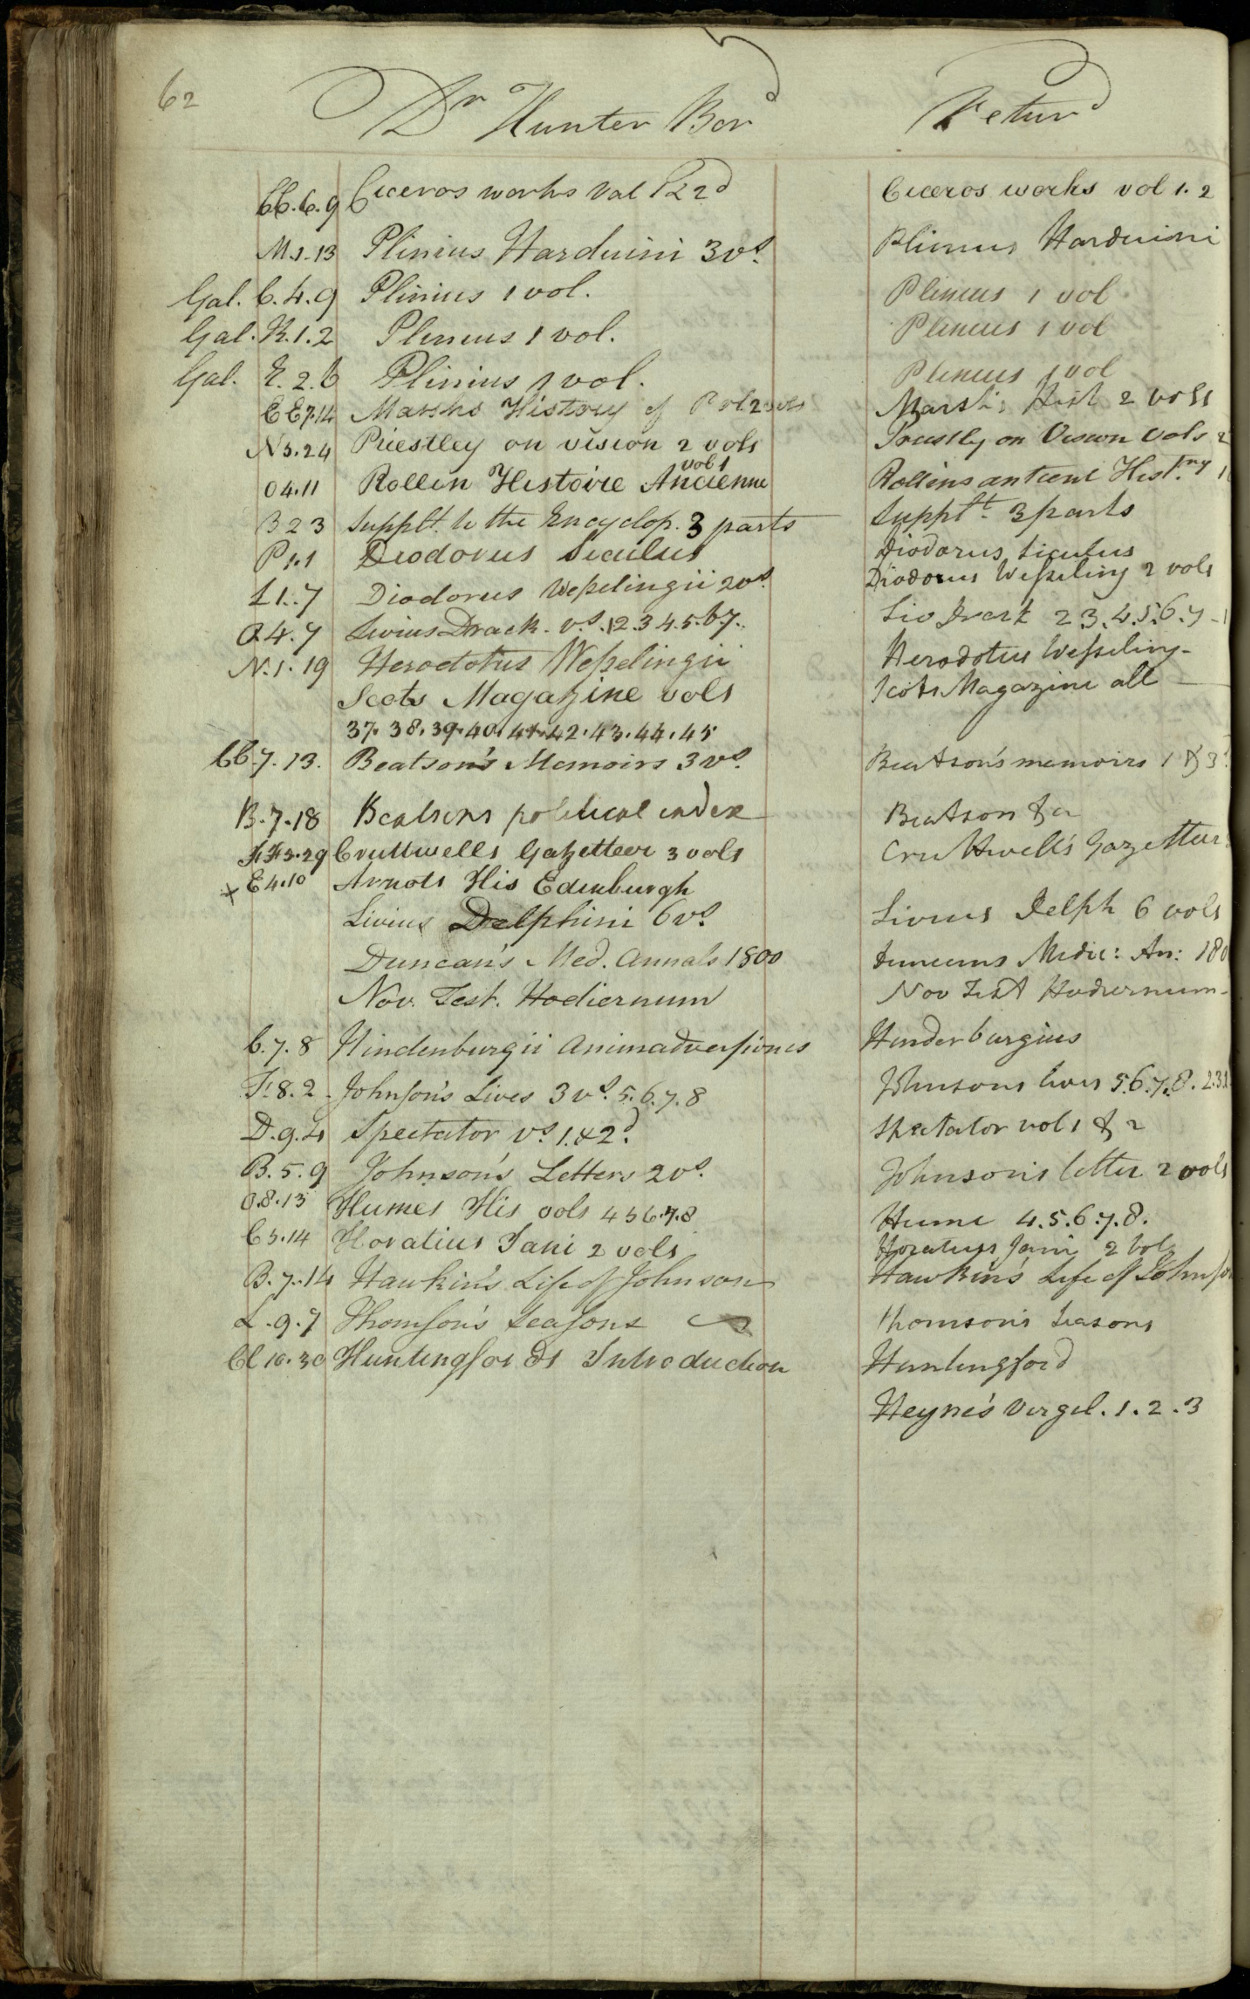 62
Dr Hunter Bord Returd
CC.6.9 Ciceros works Vol 1 & 2d Ciceros works vol 1. 2
M.1.13 Plinius Harduini 3 vs. Plinius Harduini
Gal. C.4.9 Plinius 1 vol. Plinius 1 vol
Gal. R.1.2 Plinius 1 vol. Plinius 1 vol
Gal. E.2.6 Plinius 1 vol. Plinius 1 vol
EE7.14 Marshs History of Pol 2 vols Marsh's Hist 2 vols
N5.24 Priestley on vision 2 vols Priestly on Vision Vols 2
O4.11 Rollin Histoire Ancienne vol 1 Rollins antient Hist.ry 1
B 2 3 Supplt. to the Encyclop. 3 parts Supplt. 3 parts
P 1.1 Diodorus Siculus Diodorus Siculus
L1..7 Diodorus Wesselingii 2 vs. Diodorus Wesseling 2 vols
Q.4.7 Livius Drack. vs. 1 2 3 4 5. 6 7.. Liv Drack 2 3. 4. 5. 6. 7 - 1
N.1.19 Herodotus Wesselingii Herodotus Wesseling -
Scots Magazine vols Scots Magazine all
37. 38. 39. 40. 41. 42. 43. 44. 45
CC.7.13. Beatson's Memoirs 3 vs. Beatson's memoirs 1 & 3
B.7.18 Beatsons political index Beatson &c
FF3.29 Cruttwells Gazetteer 3 vols Cruttwell's Gazetteer
x E4.10 Arnots His Edinburgh
Livius Delphini 6 vs. Livius Delph 6 vols
Duncan's Med. Annals 1800 Duncans Medic: An: 180
Nov. Test. Hodiernum Nov Test Hodiernum -
C.7.8 Hindenburgii Animadversiones Hinderburgius
F.8.2 - Johnson's Lives 3 vs. 5. 6. 7. 8 Johnsons lives 5. 6. 7. 8. 2.3.
D.9.4 Spectator vs. 1. & 2d. Spectator vol 1 & 2
B.5.9 Johnson's Letters 2 vs. Johnson's letter 2 vols
O.8.13 Humes His vols 4 5 6. 7. 8 Hume 4. 5. 6. 7. 8.
C5.14 Horatius Jani 2 vols Horatius Jani 2 vols
B.7.14 Hawkin's Life of Johnson Hawkin's Life of Johnso
L.9.7 Thomson's Seasons Thomson's Seasons
CC 10.30 Huntingfords Introduction Huntingford
Heyne's Virgil. 1. 2. 3